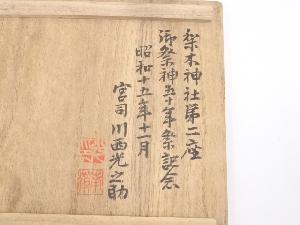 梨木神社第二座
御祭神五十年祭記念
昭和十五年十一月
宮司川西光之助